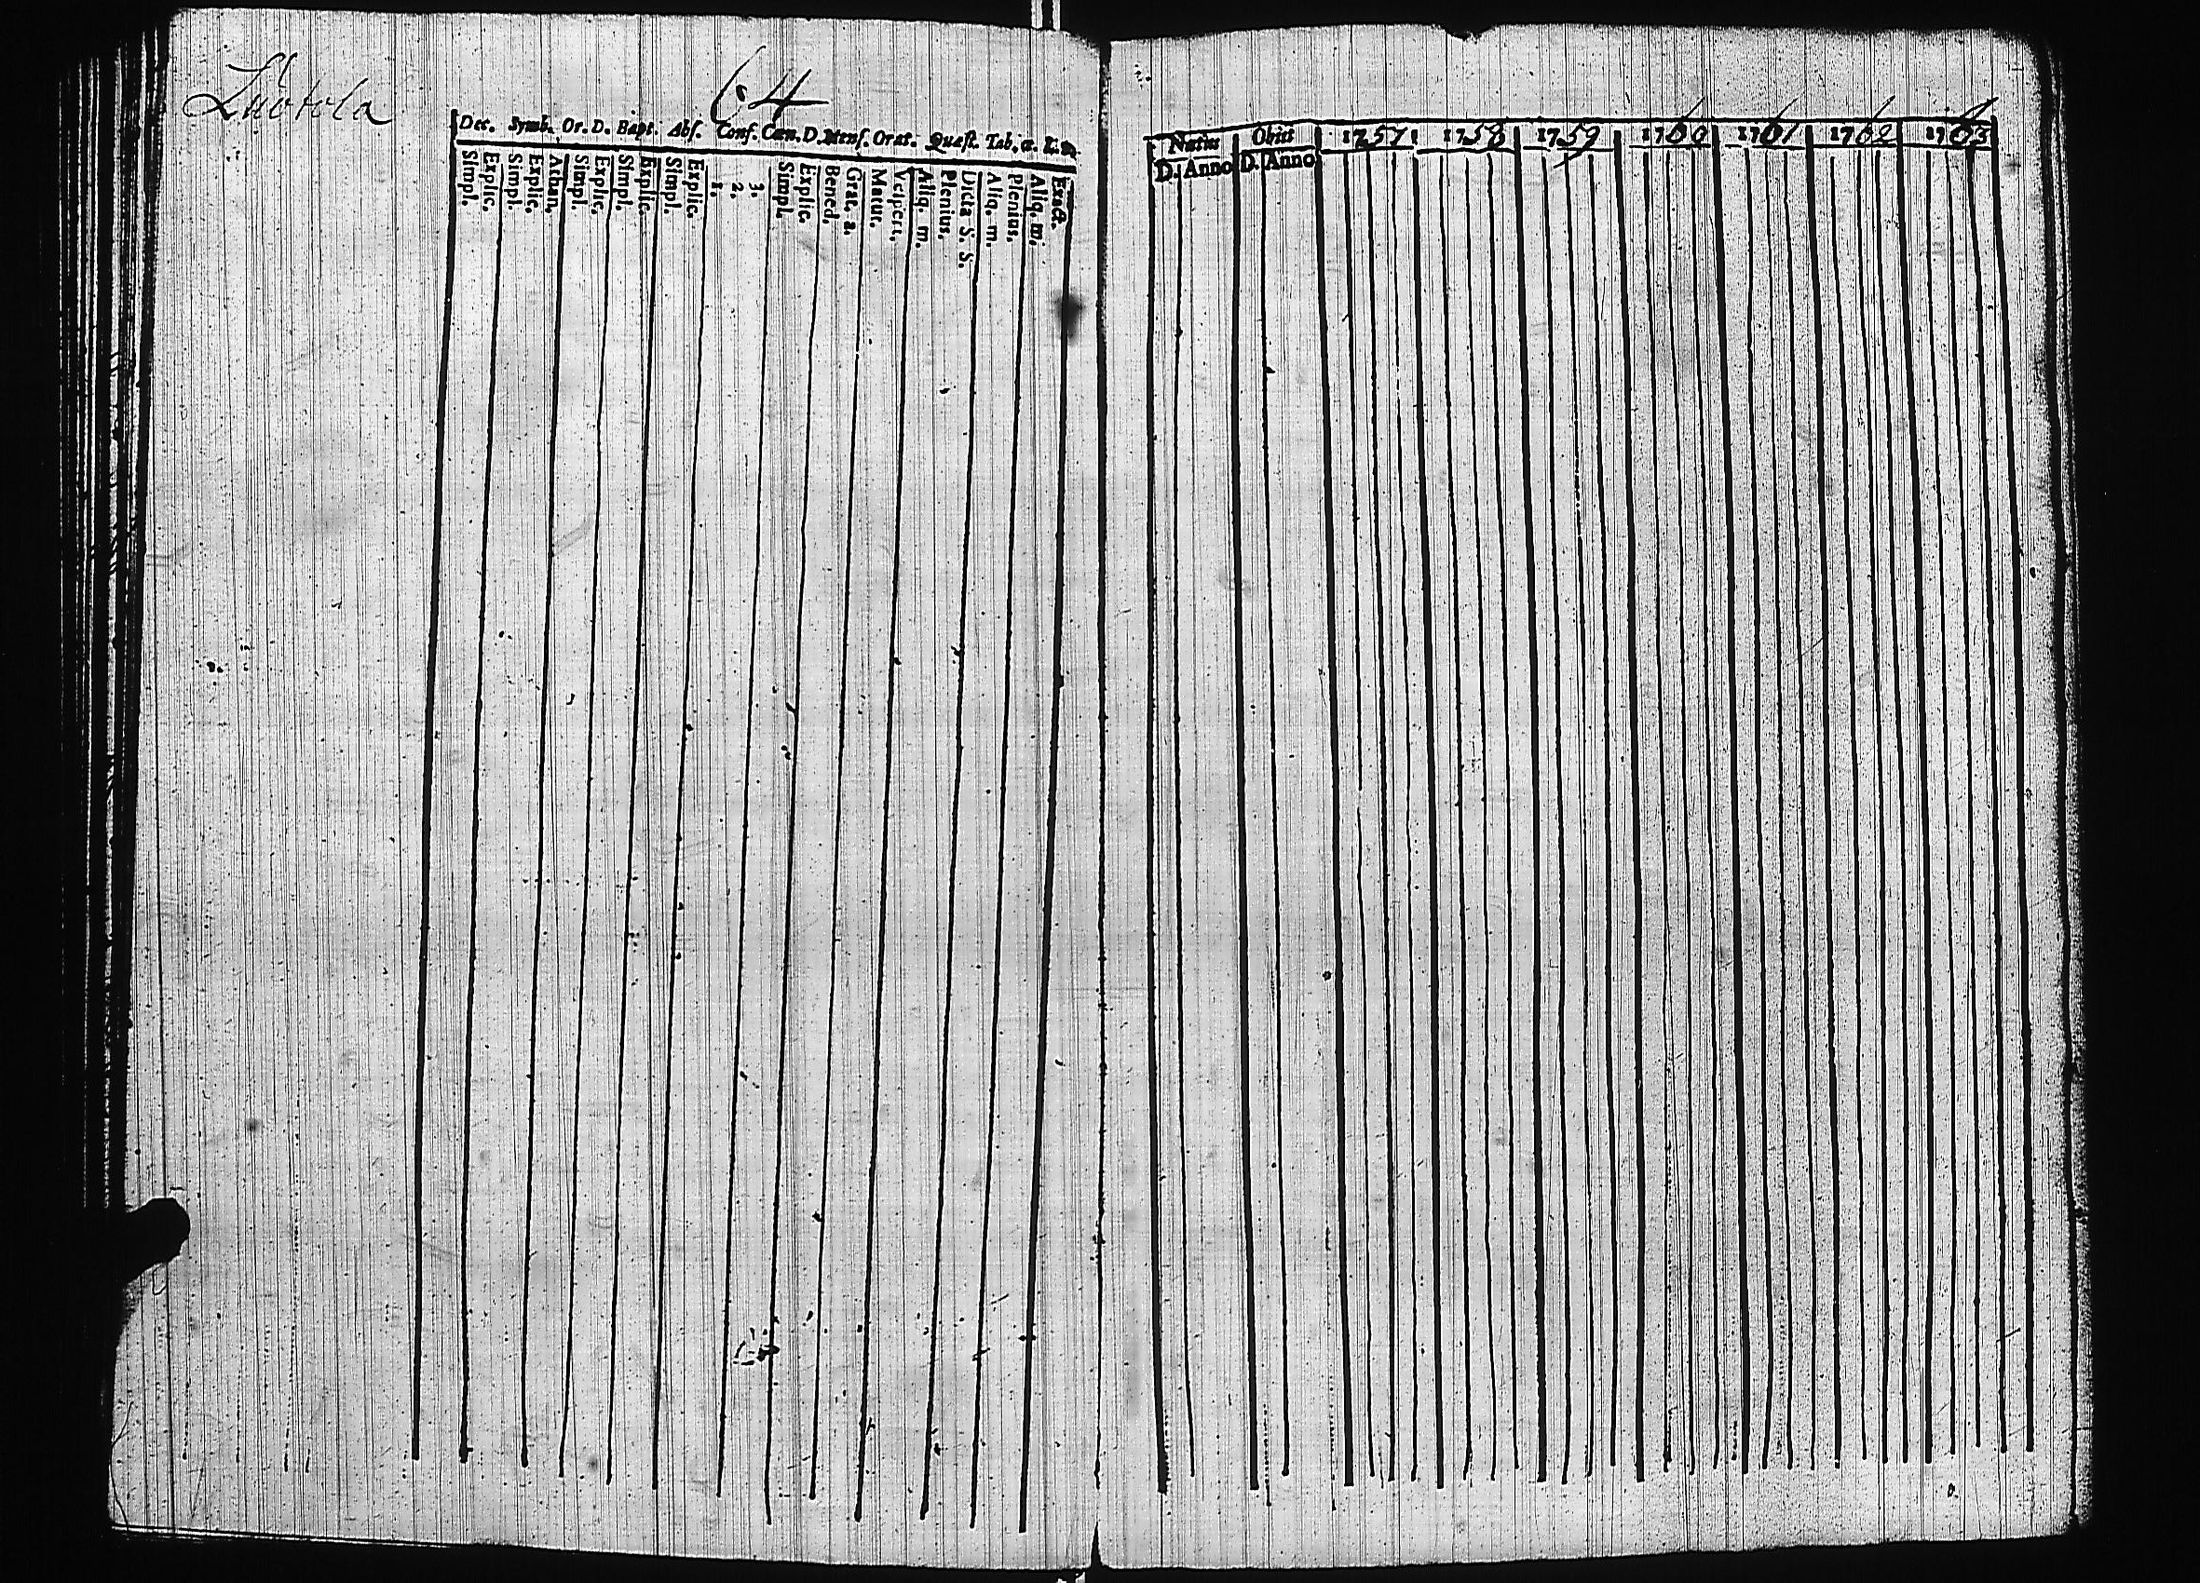 Luotola
64
Dec. Symb. Or. D. Bapt. Abs. Conf. Cæn. D. Mens. Orat. Quæst. Tab. æ.
Simpl. Explic. Simpl. Explic. Athan. Simpl. Explic. Simpl. Explic. Simpl. Explic. 1. 2. 3. Simpl. Explic. Bened. Grat. a. Matut. Vespert. Aliq. m. Plenius. Dicta S. S. Aliq. m. Plenius. Aliq. m. Exact.
Natus Obiit 1757 1758 1759 1760 1761 1762 1763
D. Anno D. Anno